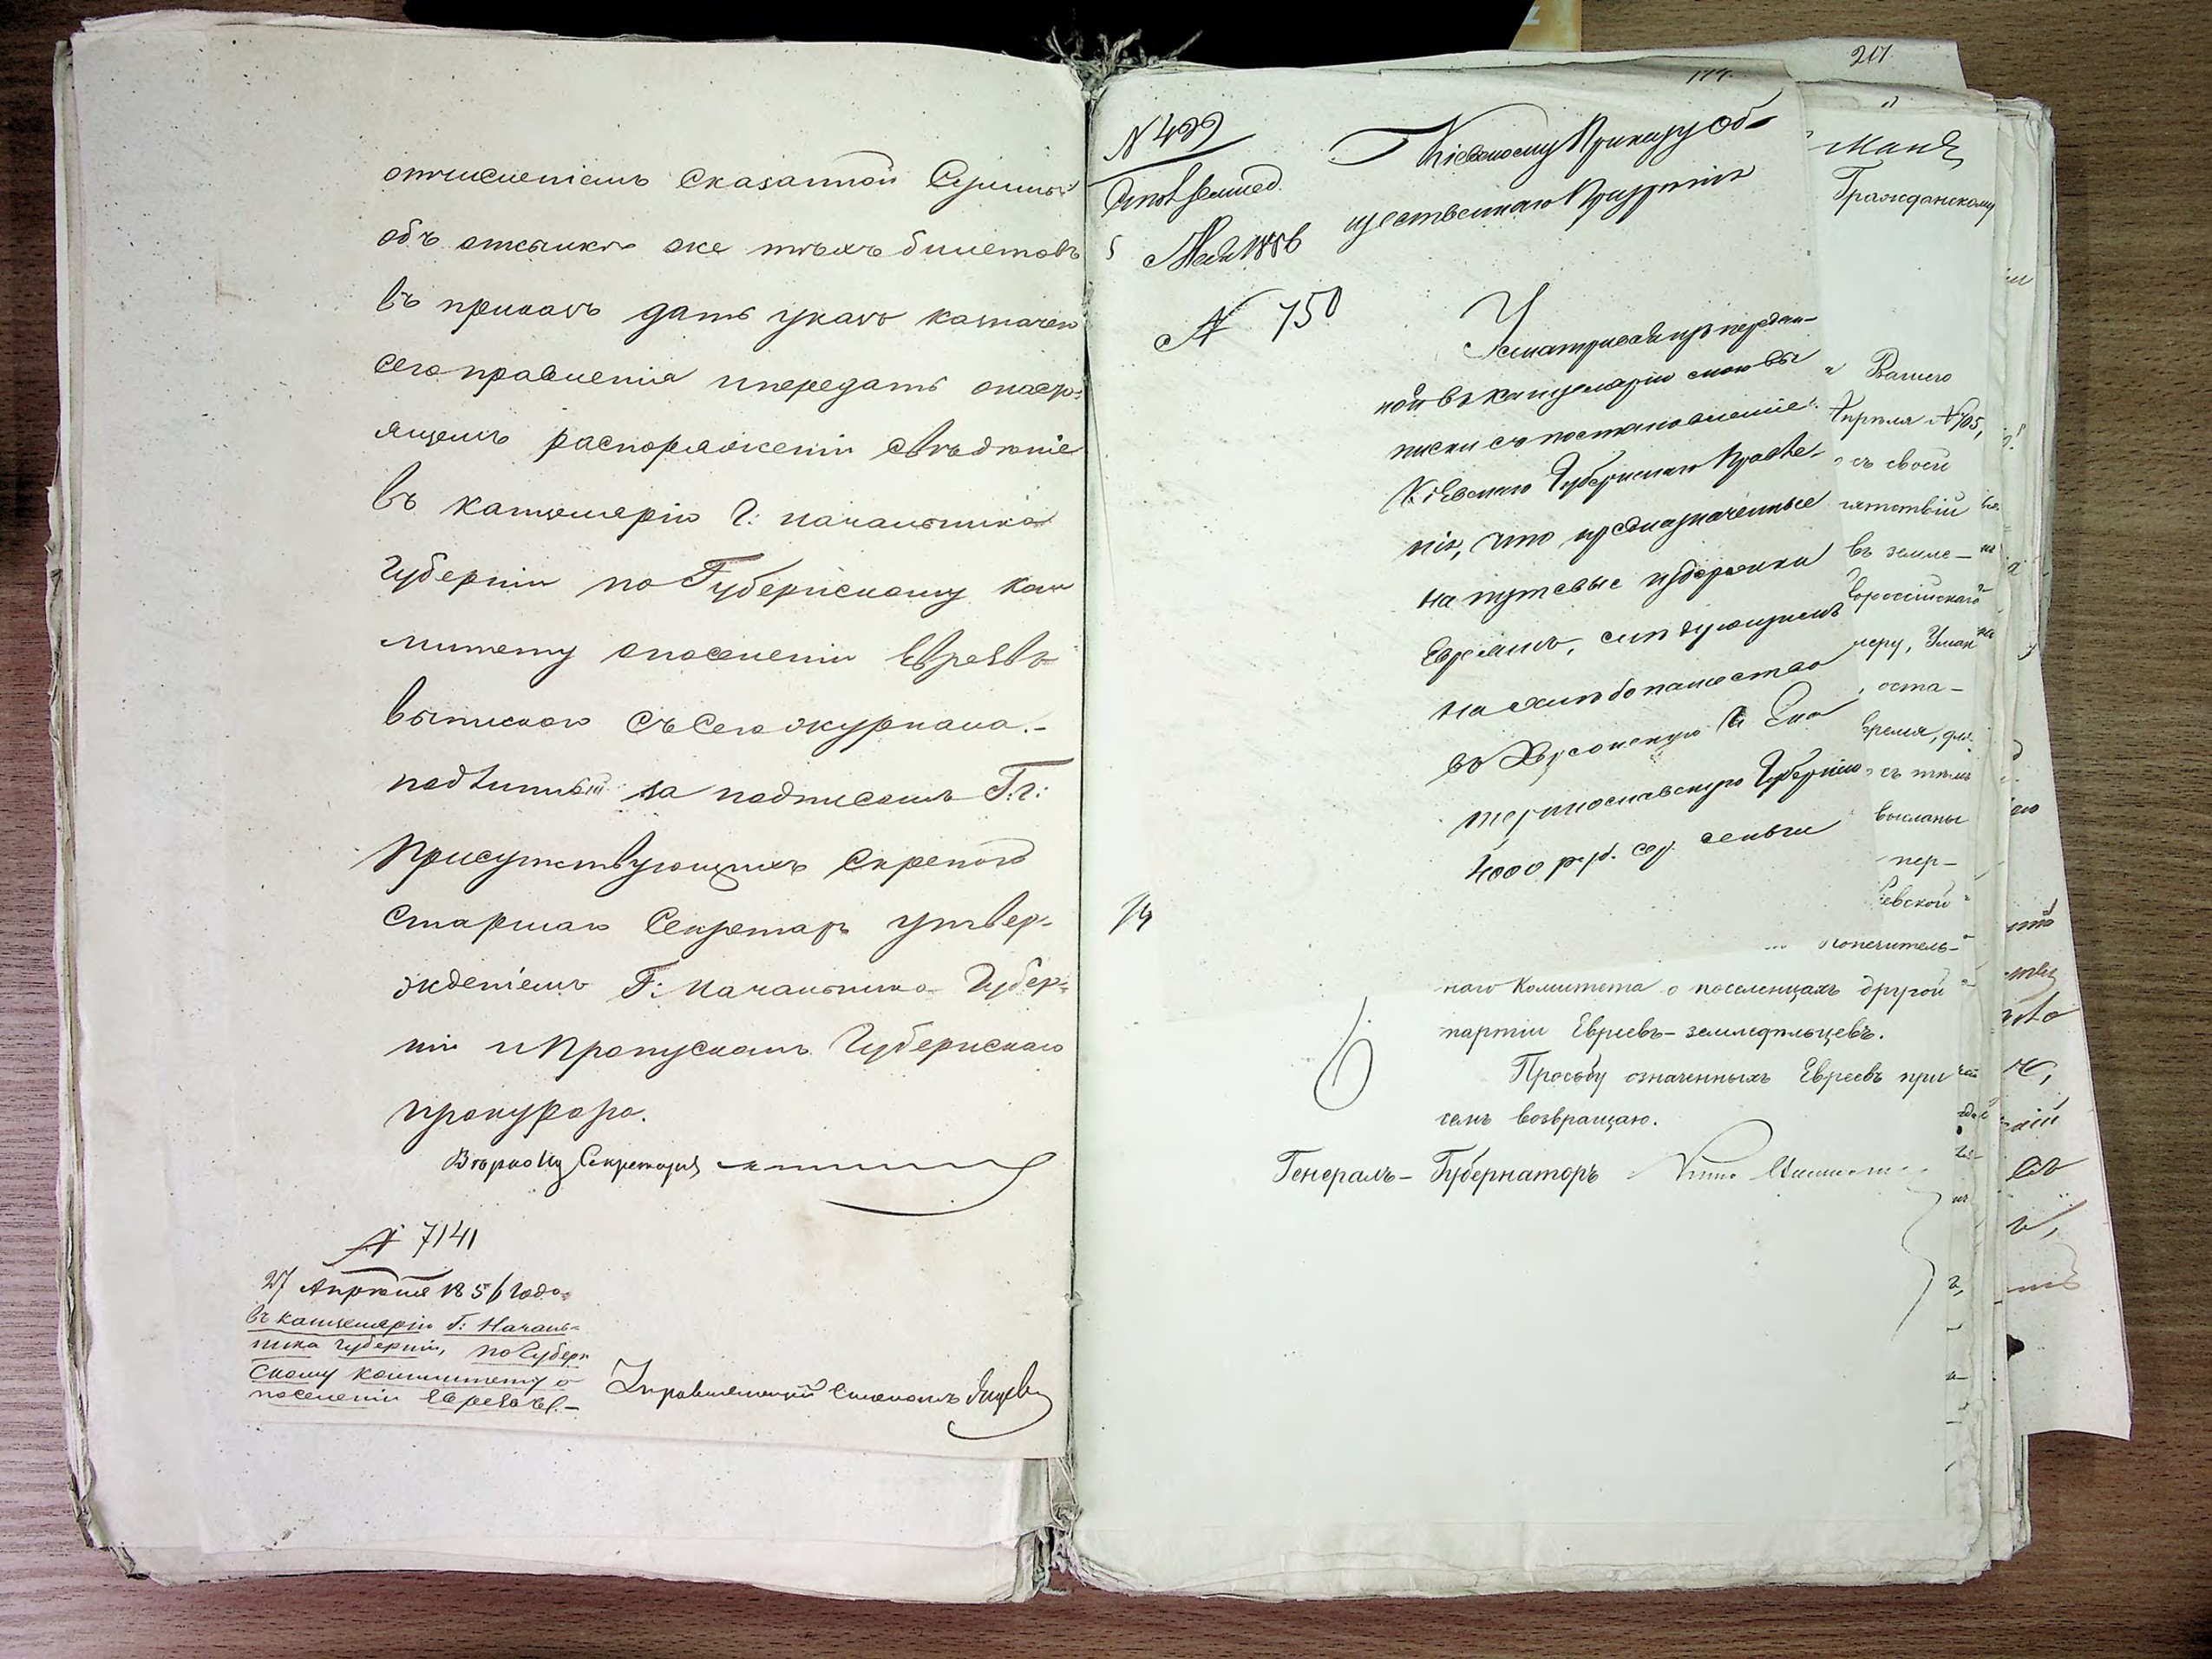 отчисленіемъ сказанной Суммы
объ отсылкѣ же тѣхъ билетовъ
въ приказъ дать указъ казначею
сего правленія и передать о насто-
ящемъ распоряженіи свѣдѣніе
въ канцелярію Г: начальника
Губерніи по Губернскому Ком
митету о поселеніи Евреевъ
выпискою съ сего журнала.-
подлинный за подписомъ Г:г:
Присутствующихъ скрепою
Старшаго Секретаря утвер-
жденіемъ Г: Начальника Губер-
ніи и Пропускомъ Губернскаго
прокурора.
Вѣрно Секретарь
№ 7141
27 Апрѣля 1856 года
въ канцелярію Г: Началь-
ника Губерніи, по Губерн
скому коммитету о
поселеніи Евреевъ.-
Управляющій Столомъ
174.
217.
№ 499
5 Мая 1856
№ 750
Кіевскому Приказу Об-
щественнаго Призрѣнія
Усматривая изъ передан-
ной въ канцелярію мою вы
писки съ постановленіе
Кіевскаго Губернскаго Правле-
нія, что предназначенные
на путевые издержки
Евреямъ, слѣдующимъ
на хлѣбопашество
въ Херсонскую и Ека
теринославскую Губернію
4000 руб. сер. деньги
14
Гражданскому
Вашего
Апрѣля № 705,
съ своей
пятствій
въ земле-
вороссійскаго
неру, Уман
оста-
время, для
съ тѣмъ
высланы
пер-
Кіевской
Попечитель-
наго Комитета о поселенцахъ другой
партіи Евреевъ-земледѣльцевъ.
Просьбу означенныхъ Евреевъ при
семъ возвращаю.
Генералъ-Губернаторъ